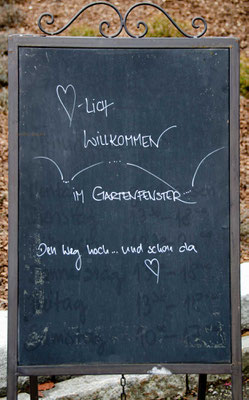 ♡-Lich
Willkommen
im Gartenfenster
Den Weg hoch... und schon da
♡